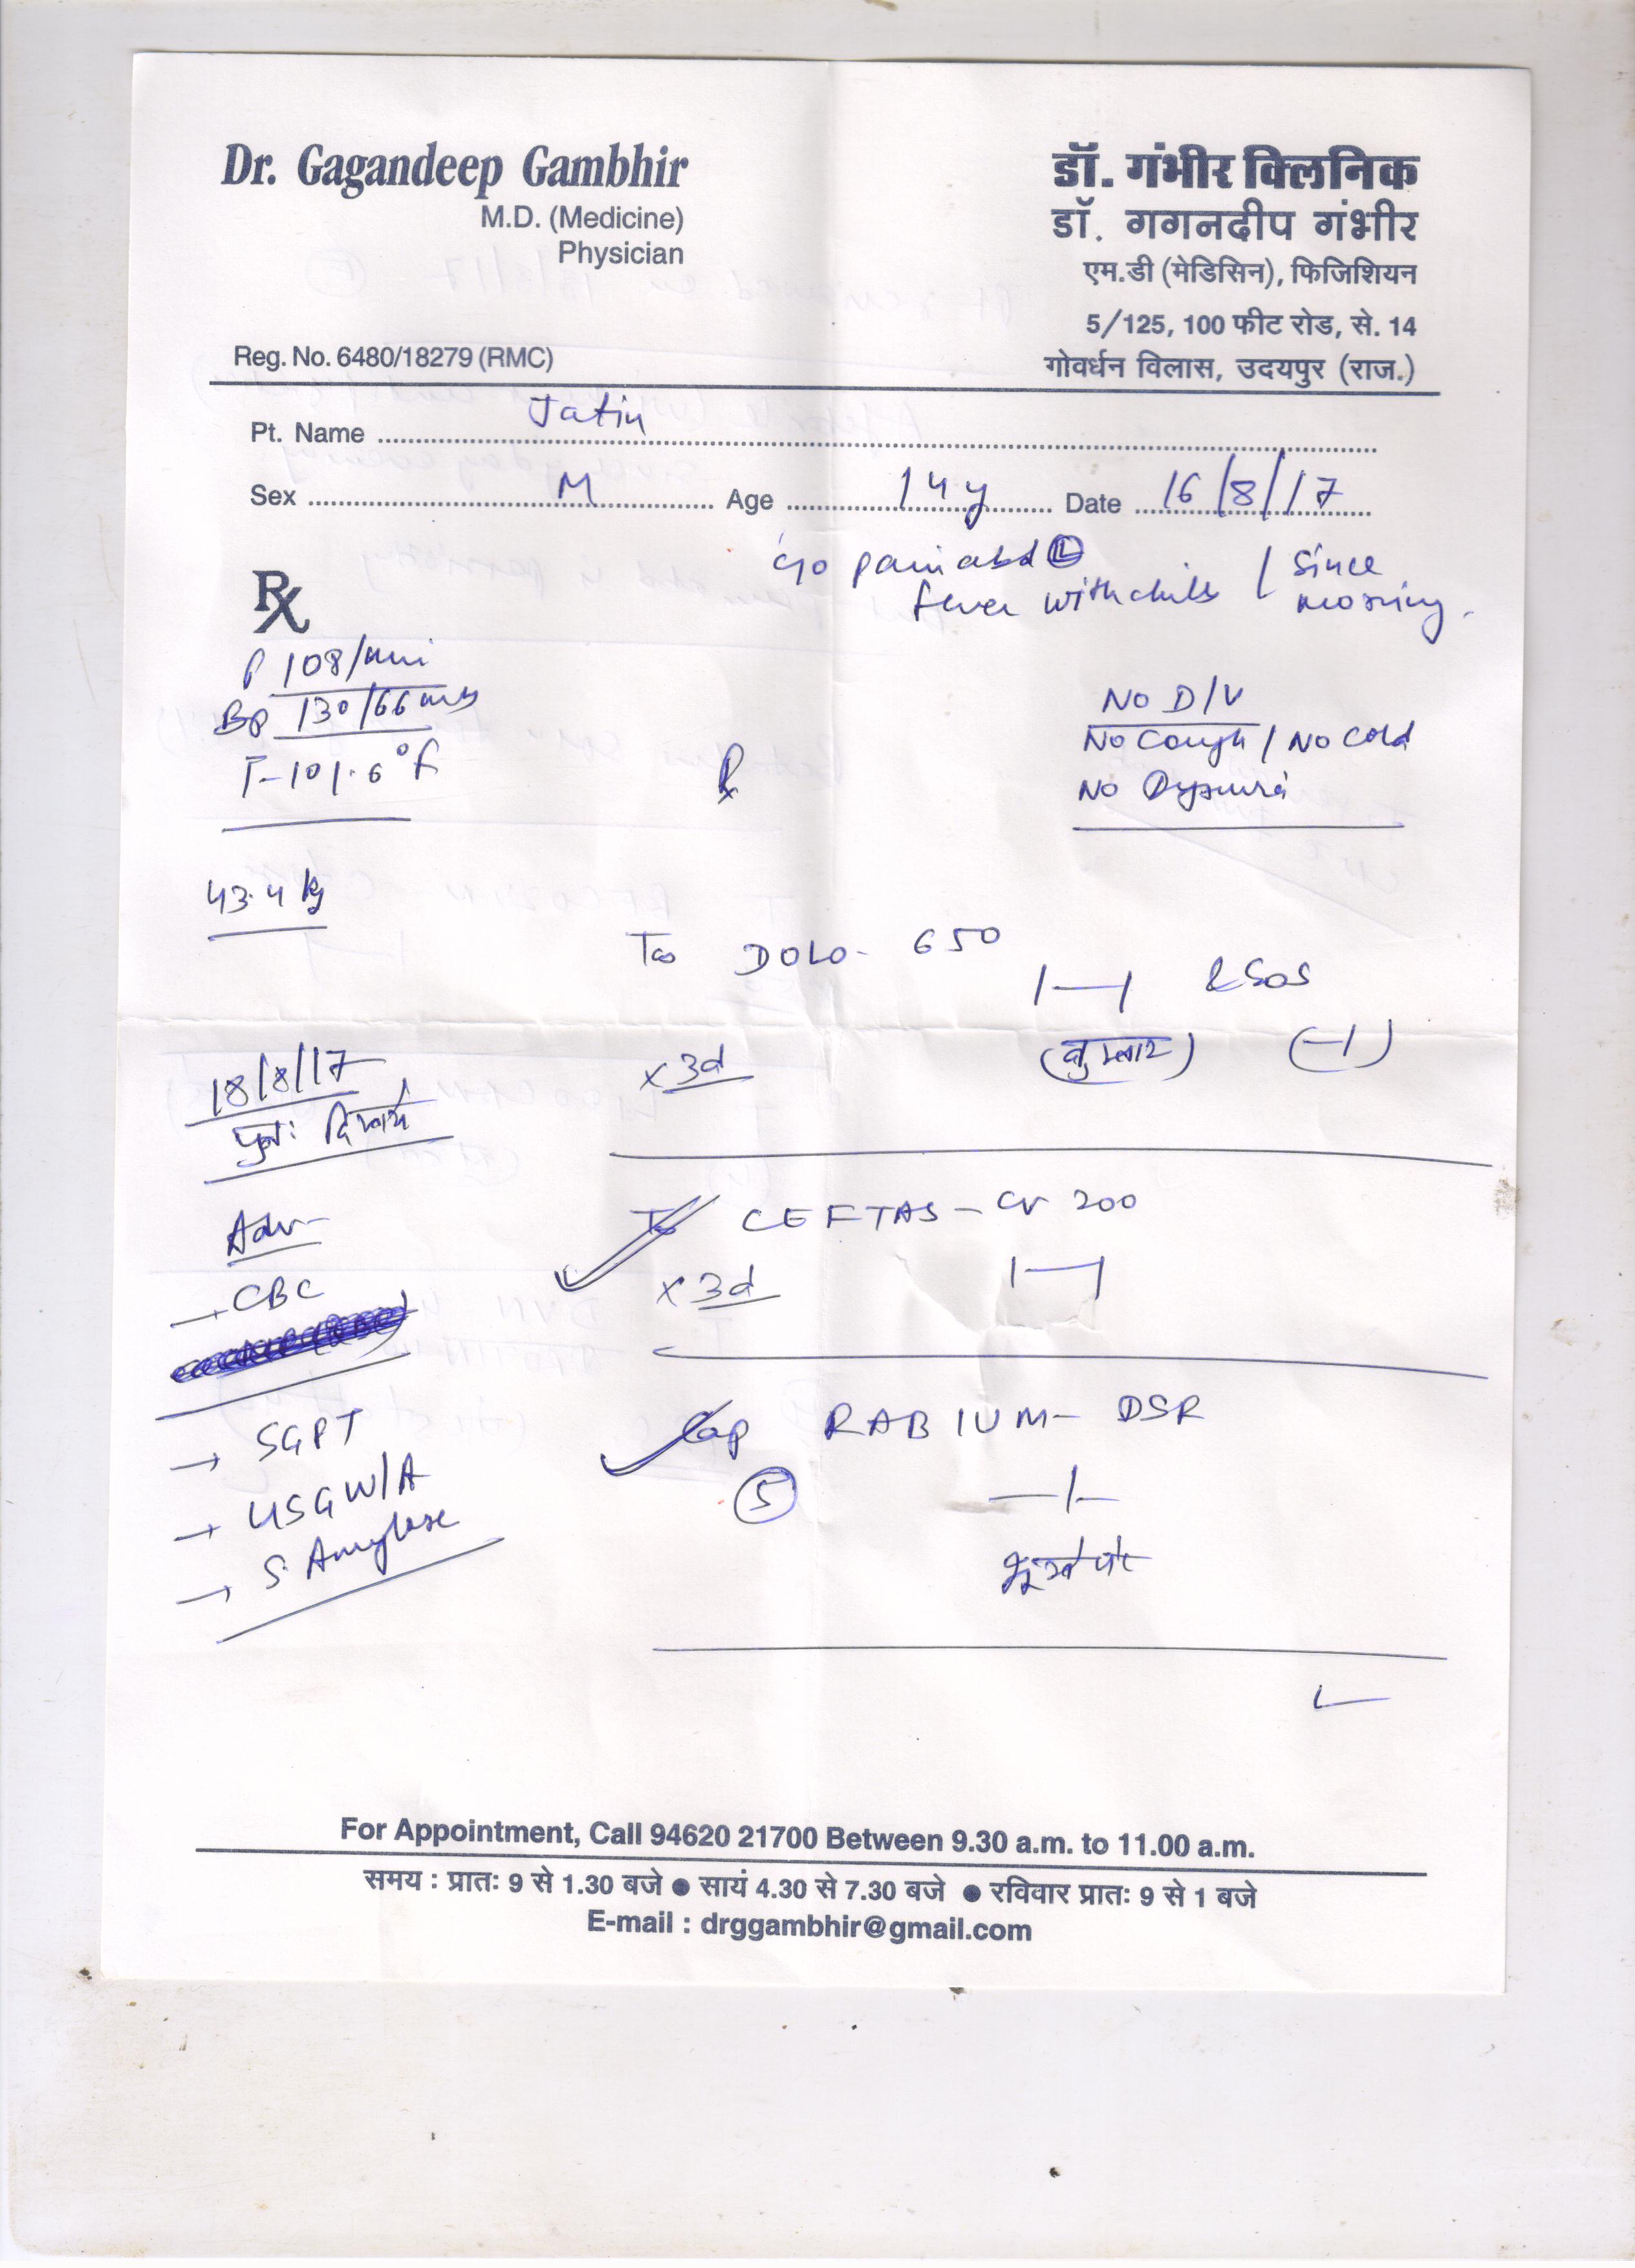 Dr. Gagandeep Gambhir
M.D. (Medicine)
Physician
Reg. No. 6480/18279 (RMC)
डॉ. गंभीर क्लिनिक
डॉ. गगनदीप गंभीर
एम.डी (मेडिसिन), फिजिशियन
5/125, 100 फीट रोड, से. 14
गोवर्धन विलास, उदयपुर (राज.)
Pt. Name Jatin
Sex M Age 14y Date 16/8/17
Rx
c/o pain abd L
fever with chills / since morning.
P 108/min
BP 130/66 mm
T-101.6°F
43.4 kg
No D/V
No Cough / No Cold
No Dysuria
Rx
DOLO-650
1—1 & SOS
(बुखार) (—1)
x 3d
18/8/17
पुनः दिखायें
Adv-
→ CBC
→ SGPT
→ USG W/A
→ S. Amylase
CEFTAS-CV 200
x 3d 1—1
Cap RABIUM-DSR
5 —1—
भूखे पेट
For Appointment, Call 94620 21700 Between 9.30 a.m. to 11.00 a.m.
समय : प्रातः 9 से 1.30 बजे ● सायं 4.30 से 7.30 बजे ● रविवार प्रातः 9 से 1 बजे
E-mail : drggambhir@gmail.com